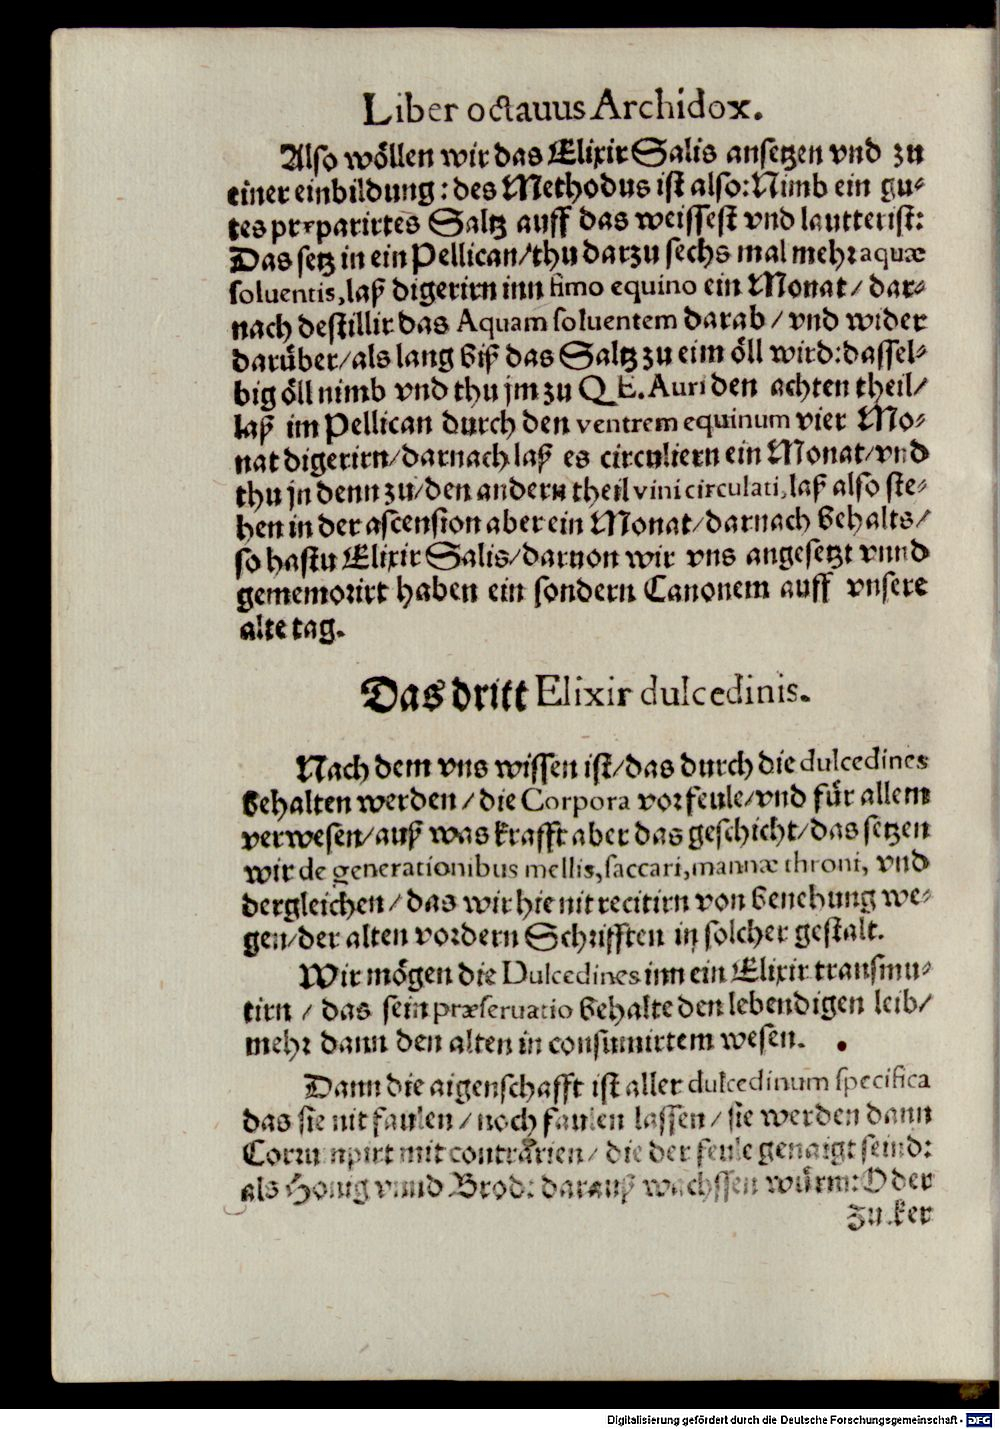 Liber octauus Archidox.
Also wöllen wir das Elixir Salis ansetzen vnd zu
einer einbildung: des Methodus ist also: Nimb ein gu-
tes præparirtes Saltz auff das weissest vnd lautterist:
Das setz in ein Pellican/thu darzu sechs mal mehr aquæ
soluentis, laß digerirn inn fimo equino ein Monat/ dar-
nach destillir das Aquam soluentem darab/ vnd wider
darüber/als lang biß das Saltz zu eim öll wird: dassel-
big öll nimb vnd thu jm zu Q E. Auri den achten theil/
laß im Pellican durch den ventrem equinum vier Mo-
nat digerirn/darnach laß es circuliern ein Monat/vnd
thu jn denn zu/den andern theil vini circulati, laß also ste-
hen in der ascension aber ein Monat/darnach behalts/
so hastu Elixir Salis/daruon wir vns angesetzt vnnd
gememorirt haben ein sondern Canonem auff vnsere
alte tag.
Das dritt Elixir dulcedinis.
Nach dem vns wissen ist/das durch die dulcedines
behalten werden/die Corpora vor feule/vnd für allem
verwesen/auß was krafft aber das geschicht/das setzen
wir de generationibus mellis, saccari, mannæ throni, vnd
dergleichen/das wir hie nit recitirn von benehung we-
gen/der alten vordern Schrifften in solcher gestalt.
Wir mögen die Dulcedines inn ein Elixir transmu-
tirn/ das sein præseruatio behalte den lebendigen leib/
mehr dann den alten in consumirtem wesen.
Dann die aigenschafft ist aller dulcedinum specifica
das sie nit faulen/noch faulen lassen/ sie werden dann
Corrumpirt mit contrarien/ die der feule genaigt seind:
als Honig vnnd Brod: darauß wachssen würm: Oder
zuker
Digitalisierung gefördert durch die Deutsche Forschungsgemeinschaft - DFG